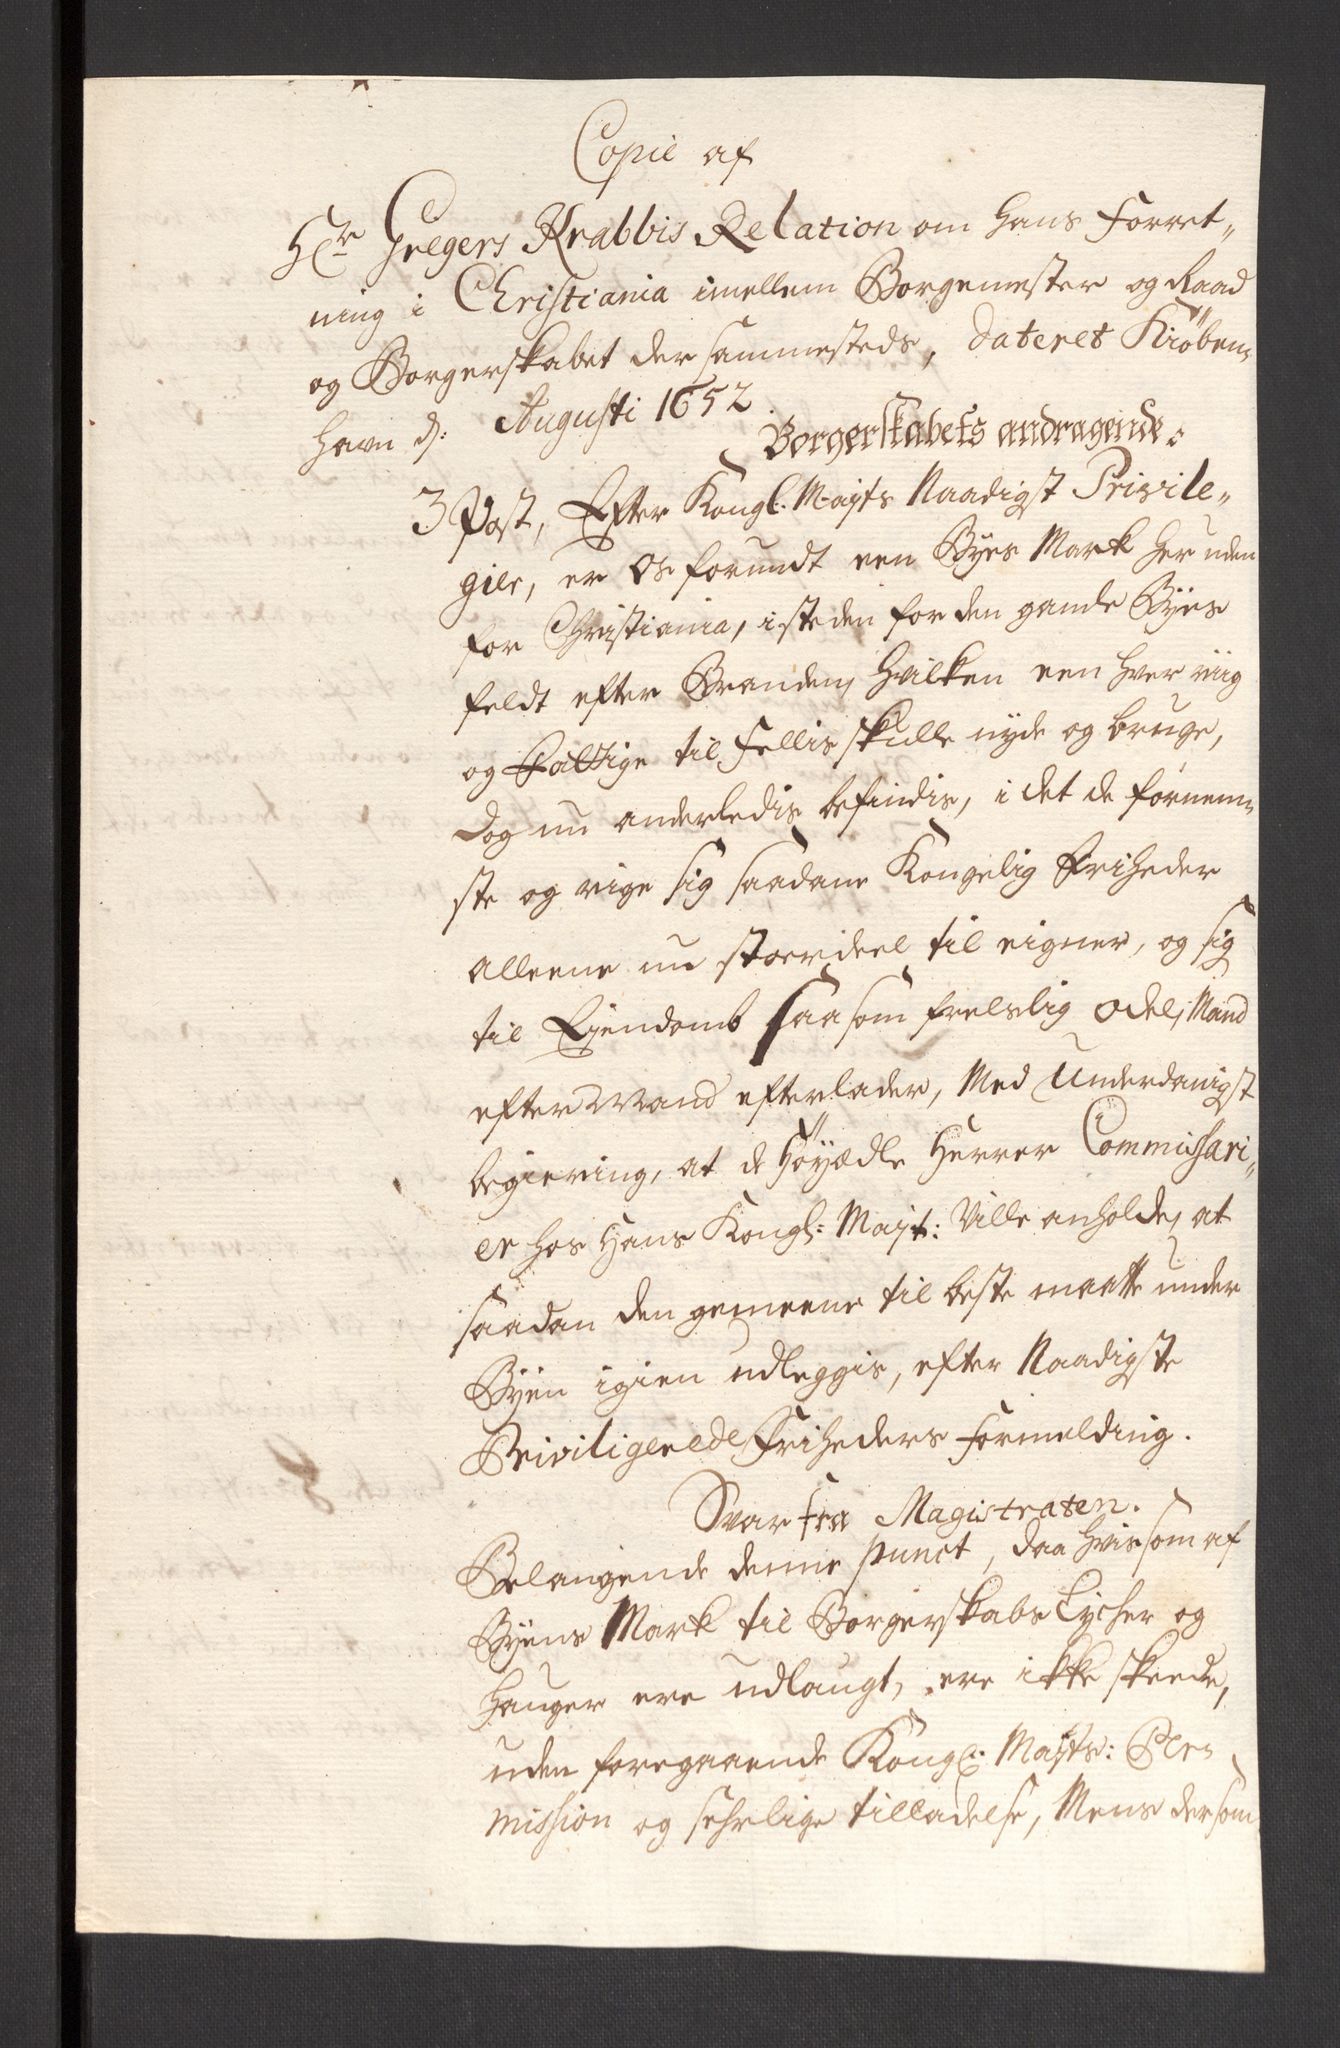 Copie af
Hr Gregers Krabbis Relation om hans Forret„
ning i Christiania imellem Borgemester og Raad
og Borgerskabet der sammesteds, dateret Kiøben„
havn d: Augusti 1652
Borgerskabets andragende:
3 Post, Efter Kongl. Mayts Naadigst Privile„
gier, er Os forundt een Byes Mark her uden
for Christiania, isteden for den gamle Byes
feldt efter Branden, hvilken een hver riig
og Fattige til Fellis skulle nyde og bruge,
dog nu anderledis befindis, i det de fornem„
ste og rige sig saadane Kongelig Friheder
alleene nu stoerdeel til eigner, og sig
til Eyendomb saa som frelselig Odel, Mand
efter Mand efterlader, Med Underdanigst
begiering, at de Höyædle Herrer Commissari„
er hos Hans Kongl: Mayt: Ville anholde, at
saadan den gemeene til beste maatte under
Byen igien udleggis, efter Naadigste
Priviligerede Friheders Formelding.
Svar fra Magistraten.
Belangende denne punct, daa hvis som af
Byens Mark til Borgerskabs Løcher og
Hauger ere udlaugt, ere ikke skeede,
uden foregaaende Kongl: Mayts: Per„
mission og sehrlige tilladelse, Mens dersom